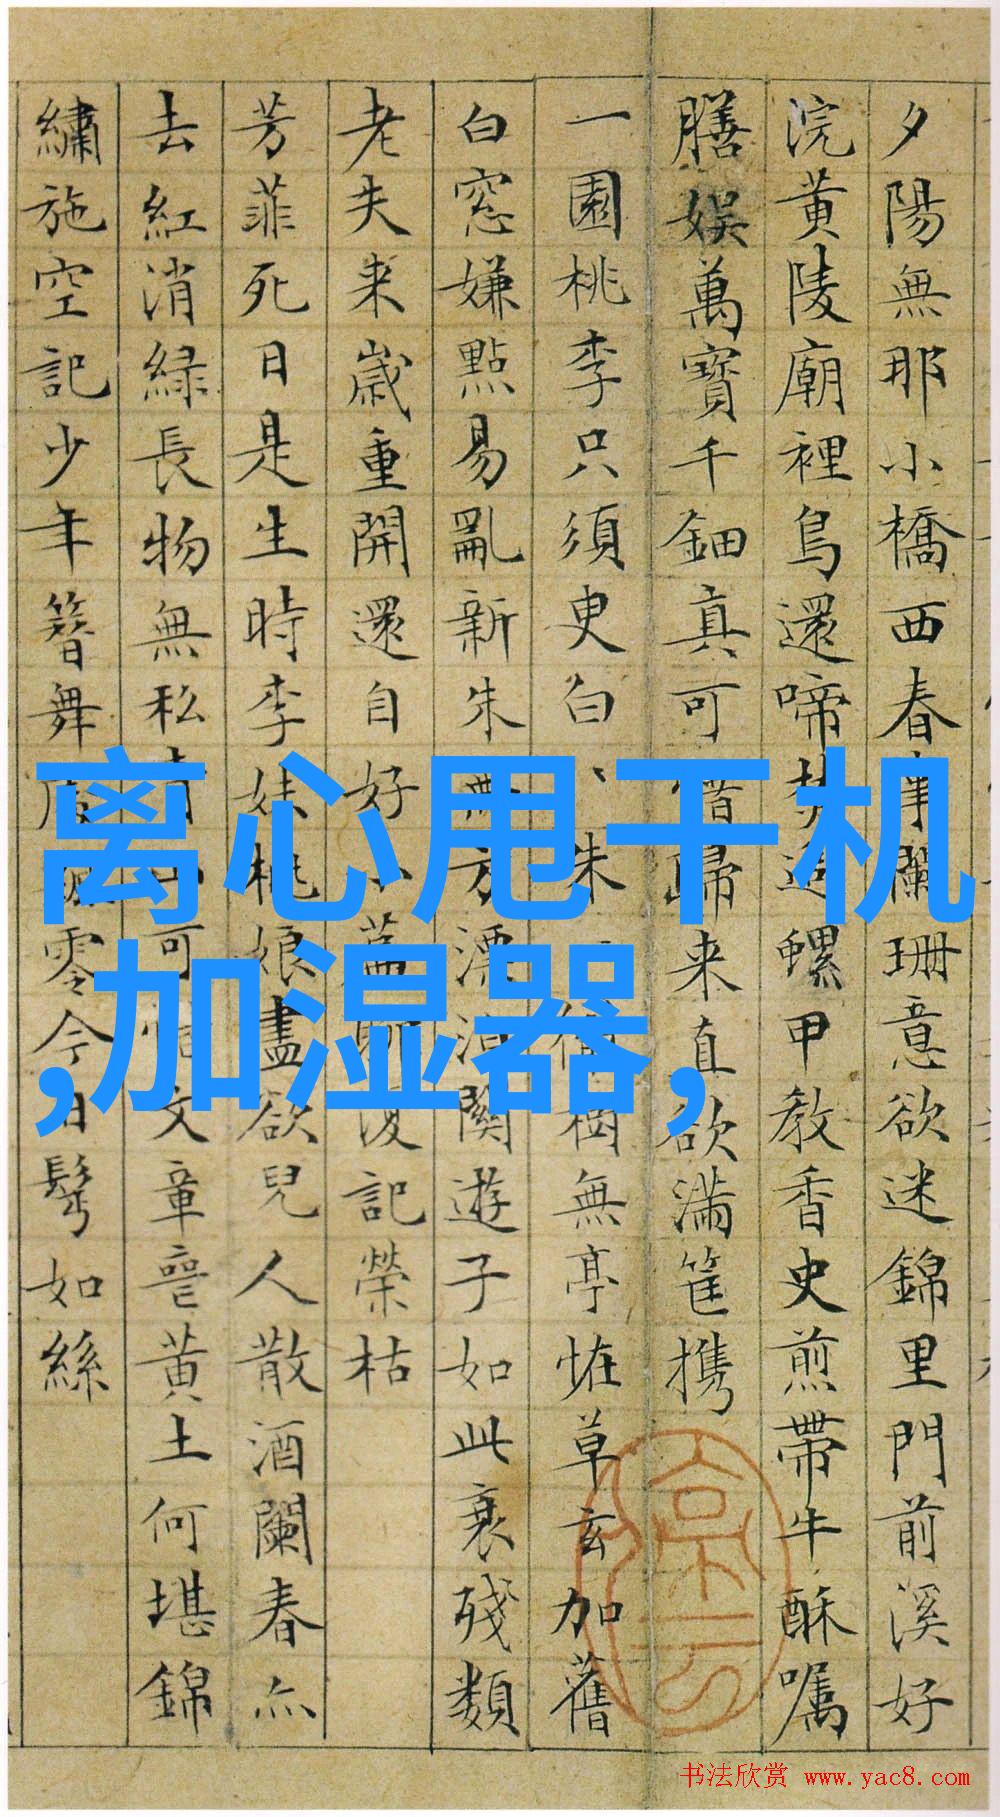 夕陽無那小橋西春事闌珊意欲迷錦里門前溪好
浣黄陵廟裡鳥還啼焚追螺甲教香史煎帶牛酥囑
膳娱萬寶千鈿真可惜歸来直欲满筐携
一園桃李只須臾白、朱無亭恠草玄加舊
白窓嫌點易亂新朱無方漂泊關遊子如此衰殘類
老夫来歲重開還自好小篇聊復記榮枯
芳菲死日是生時李妹桃娘盡欲兒人散酒闌春亦
去紅消緑長物無私青可文章喪黄土何堪錦
繡施空記少年簪舞零今日鬢如絲
离心甩干机
,加湿器,
书法欣赏 www.yac8.com